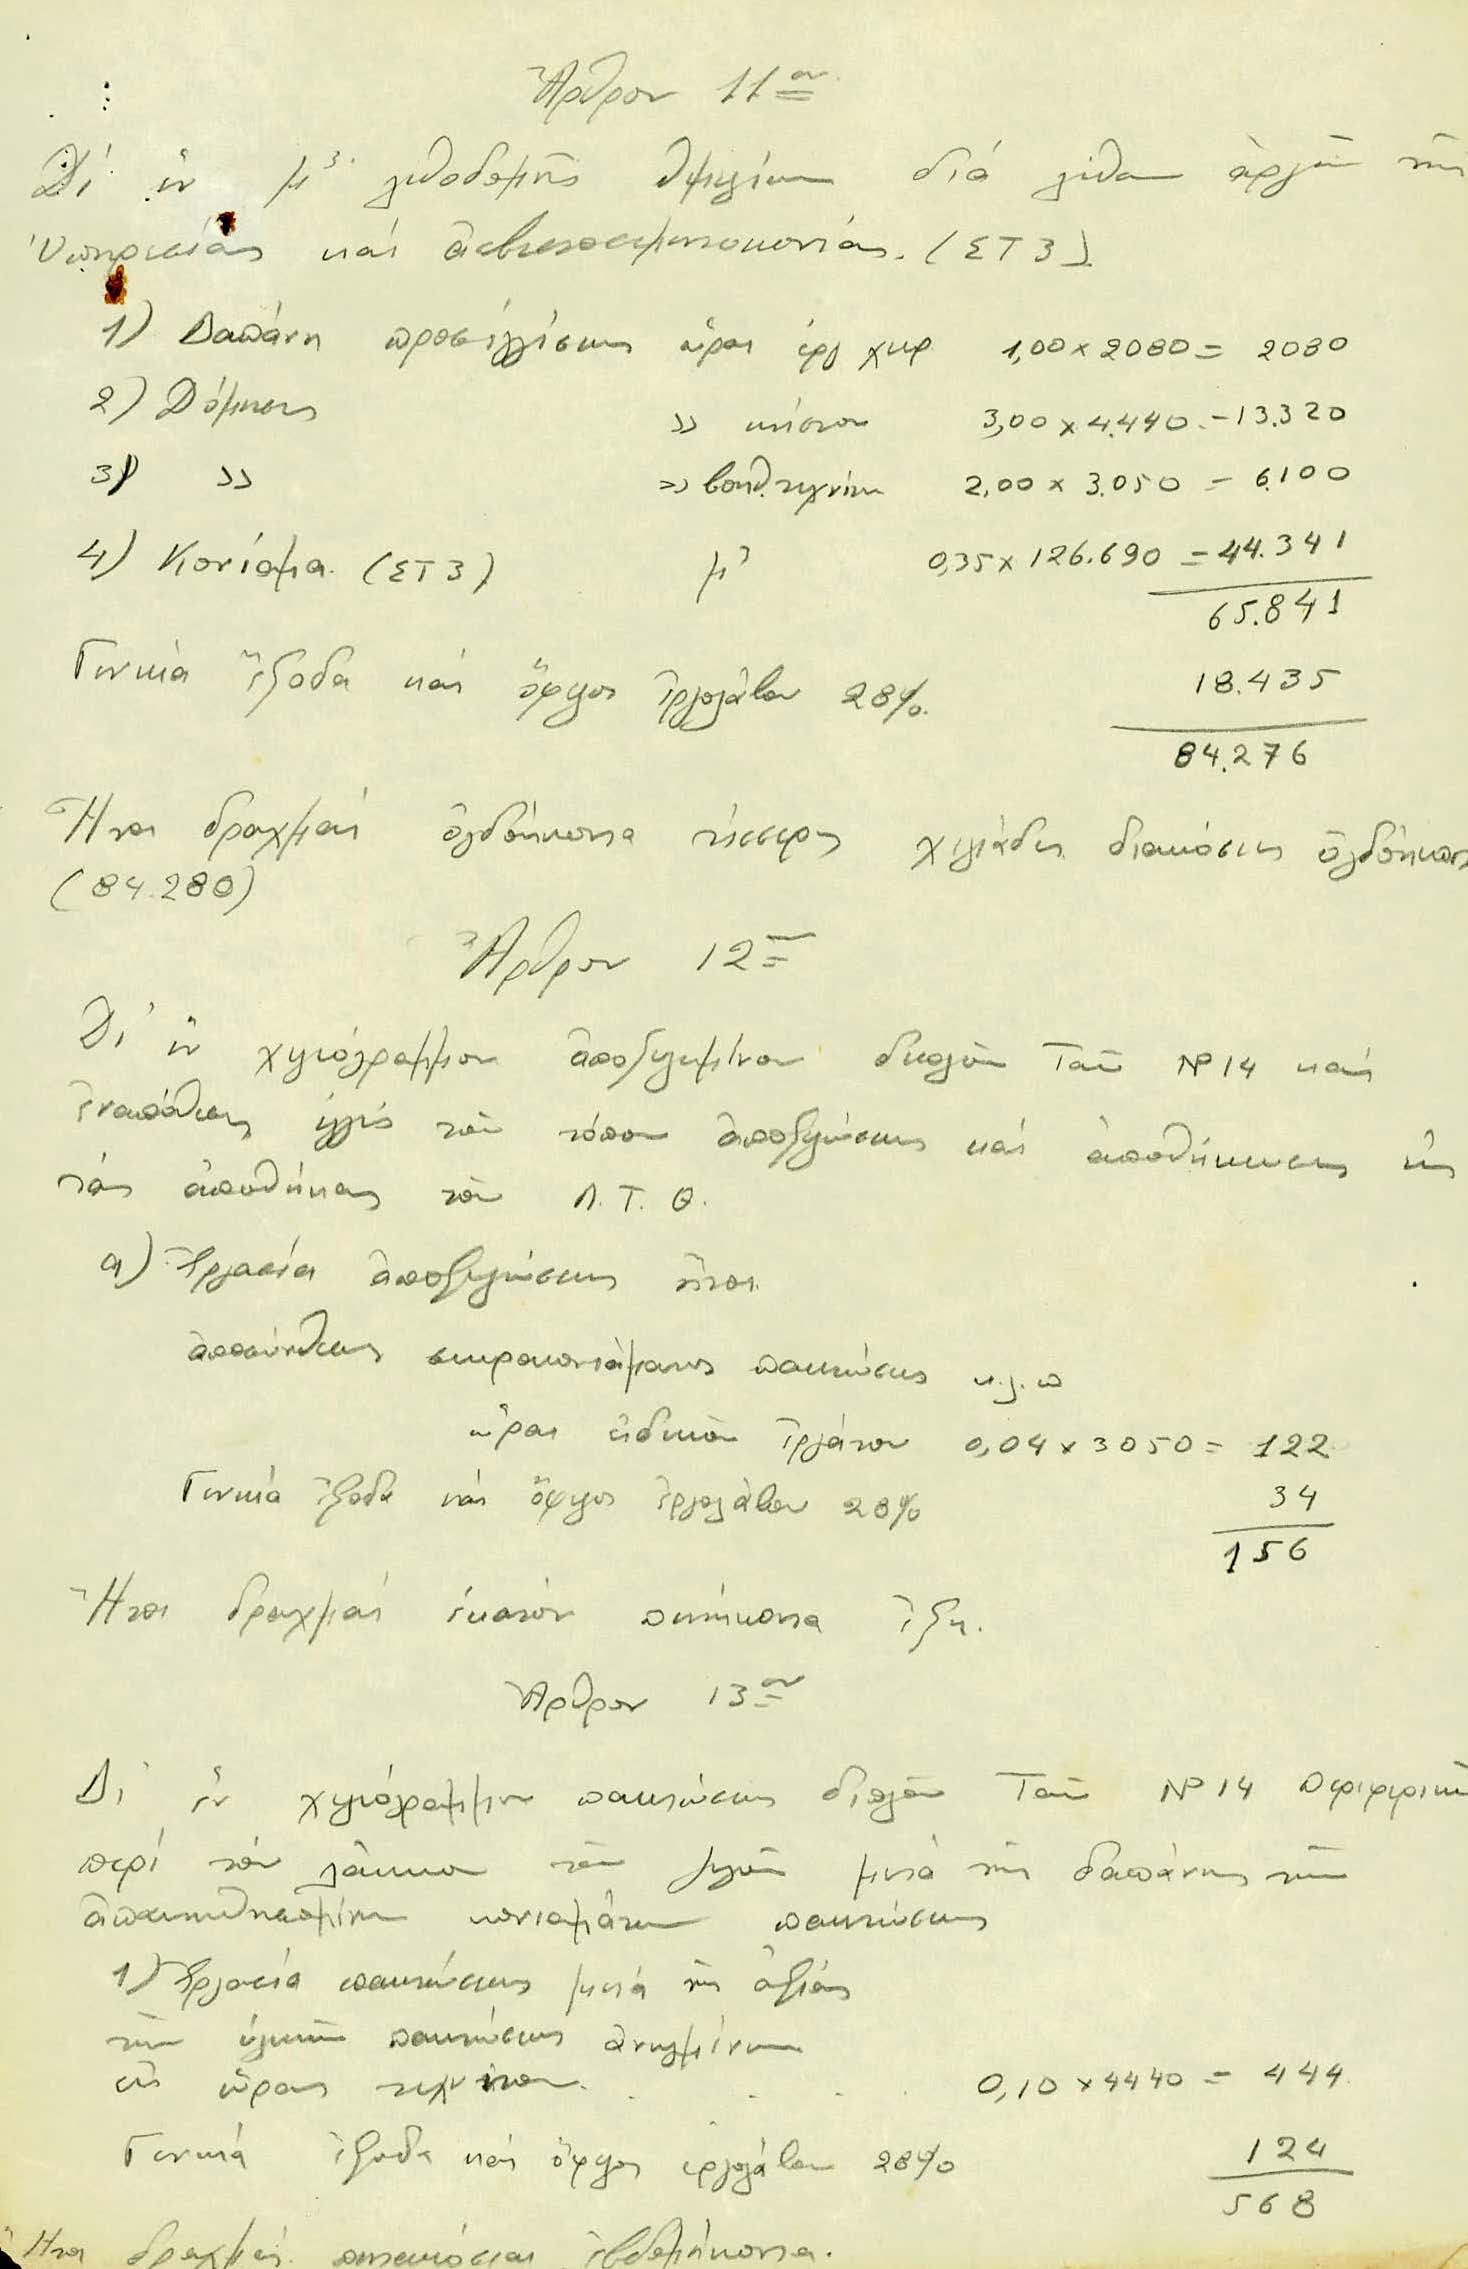 Ἄρθρον 11ον
Δι' ἕν μ3. λιθοδομῆς θεμελίων διά λίθων ἀργῶν τῆς
Ὑπηρεσίας καί ἀσβεστοτσιμεντοκονίας. (ΣΤ3)
1) Δαπάνη προσεγγίσεως ὧραι ἐργ χειρ 1,00 x 2080 = 2080
2) Δόμησις » κτίστου 3,00 x 4.440 = 13.320
3) » » βοηθ. τεχνίτου 2,00 x 3.050 = 6.100
4) Κονίαμα (ΣΤ3) μ3 0,35 x 126.690 = 44.341
65.841
Γενικά ἔξοδα καί ὄφελος ἐργολάβου 28% 18.435
84.276
Ἤτοι δραχμαί ὀγδοήκοντα τέσσερες χιλιάδες διακόσιες ὀγδοήκοντα
(84.280)
Ἄρθρον 12ον
Δι' ἕν χιλιόγραμμον ἀποξυλωμένου διπλοῦ Ταῦ Νº 14 καί
ἐναποθέσεως ἐγγύς τοῦ τόπου ἀποξυλώσεως καί ἀποθηκεύσεως εἰς
τάς ἀποθήκας τοῦ Λ.Τ.Θ.
α) Ἐργασία ἀποξυλώσεως ἤτοι
ἀποσύνθεσις σκιροκονιάματος πακτώσεως κ.λ.π
ὧραι εἰδικοῦ ἐργάτου 0,04 x 3050 = 122
Γενικά ἔξοδα καί ὄφελος ἐργολάβου 28% 34
156
Ἤτοι δραχμαί ἑκατόν πεντήκοντα ἕξη.
Ἄρθρον 13ον
Δι' ἕν χιλιόγραμμον πακτώσεως διπλοῦ Ταῦ Νº 14 περιφερικῶς
περί τόν λάκκον τοῦ μετά τῆς δαπάνης τῶν
κονιαμάτων πακτώσεως
1) Ἐργασία πακτώσεως μετά τῆς ἀξίας
τῶν ὑλικῶν πακτώσεως ἀνηγμένων
εἰς ὥρας τεχνίτου. . . . . 0,10 x 4440 = 444
Γενικά ἔξοδα καί ὄφελος ἐργολάβου 28% 124
568
Ἤτοι δραχμαί πεντακόσιαι ἑβδομήκοντα.